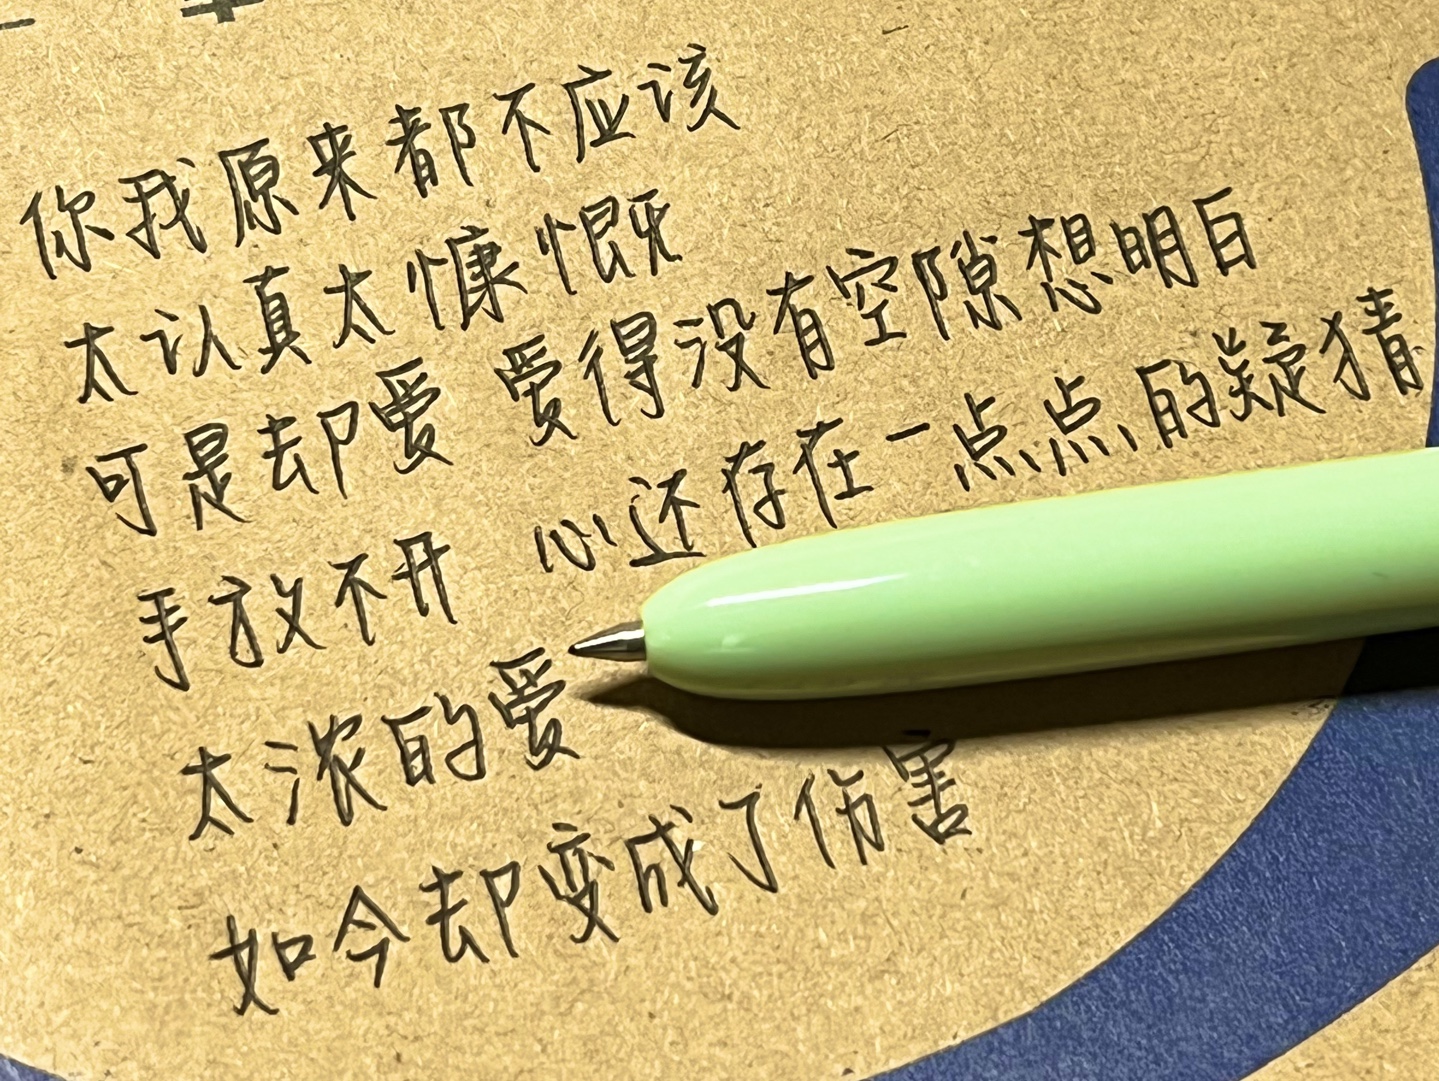 你我原来都不应该
太认真太慷慨
可是却爱 爱得没有空隙想明白
手放不开 心还存在一点点的疑猜
太浓的爱
如今却变成了伤害